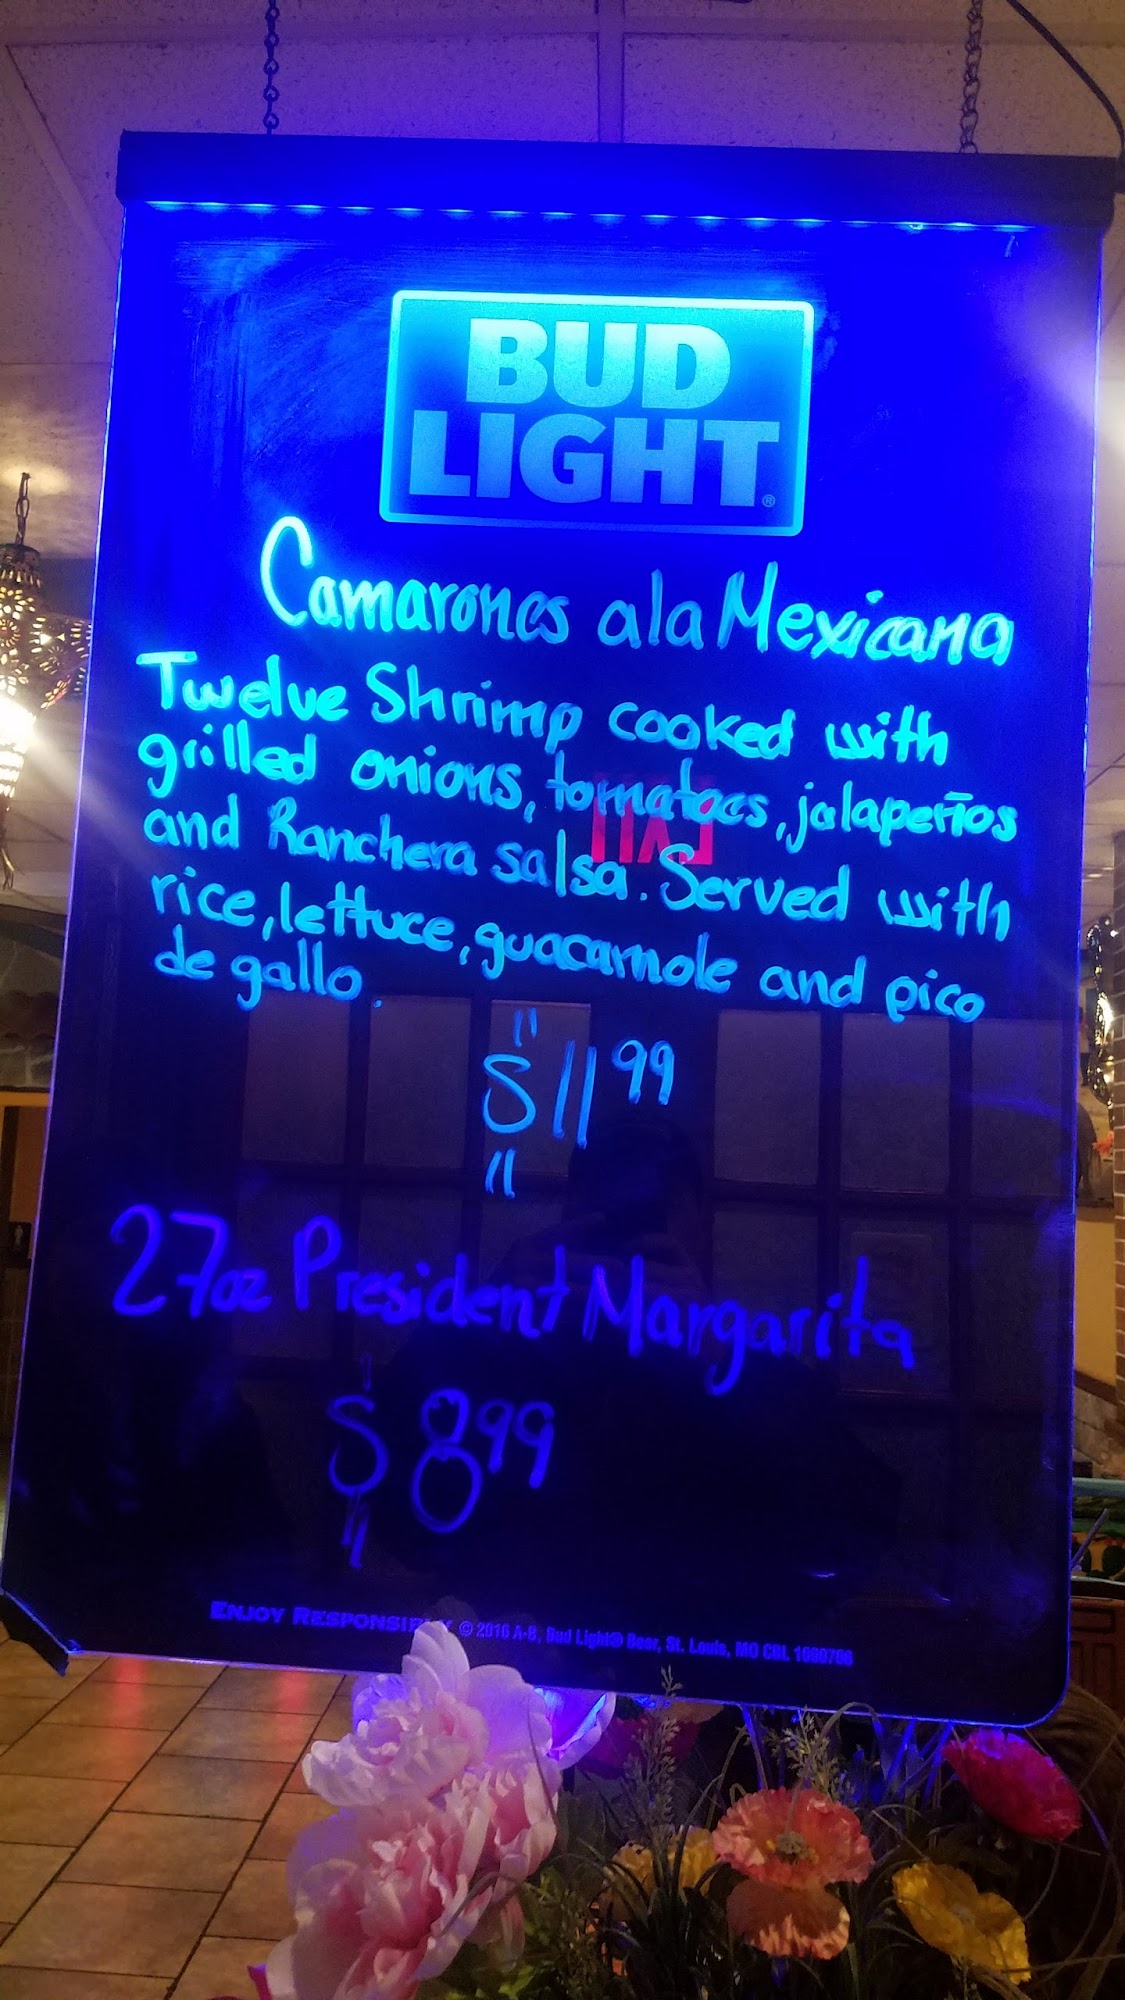 BUD
LIGHT®
Camarones ala Mexicana
Twelve Shrimp cooked with
grilled onions, tomatoes, jalapeños
and Ranchera salsa. Served with
rice, lettuce, guacamole and pico
de gallo.
$11 99
27oz President Margarita
$8 99
ENJOY RESPONSIBLY © 2016 A-B, Bud Light® Beer, St. Louis, MO
EXIT